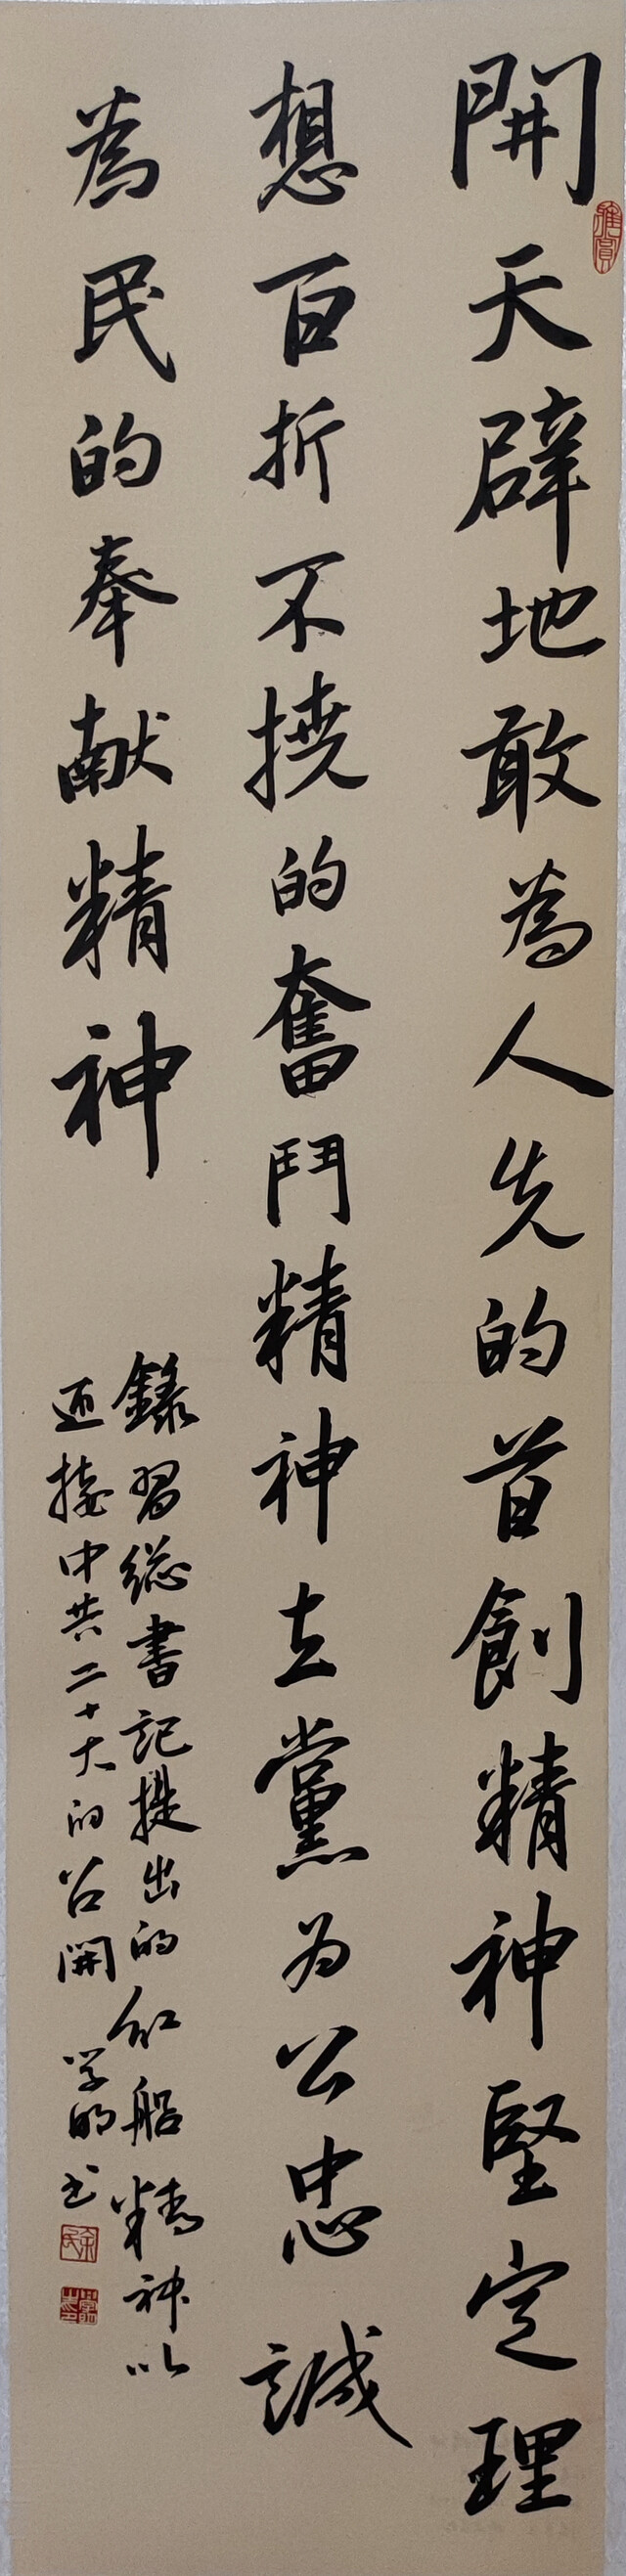 開天辟地敢為人先的首創精神堅定理
想百折不撓的奮鬥精神立黨为公忠誠
為民的奉献精神
錄習總書記提出的紅船精神以
迎接中共二十大的召開 学明书
雅賞
余氏